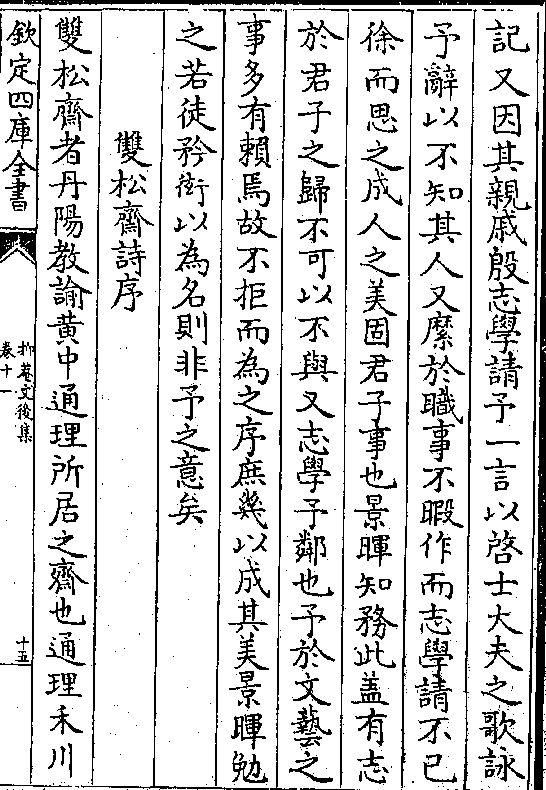 記又因其親戚殷志學請予一言以啓士大夫之歌詠
予辭以不知其人又縻於職事不暇作而志學請不已
徐而思之成人之美固君子事也景暉知務此葢有志
於君子之歸不可以不與又志學予鄰也予於文藝之
事多有賴焉故不拒而為之序庶幾以成其美景暉勉
之若徒矜衒以為名則非予之意矣
雙松齋詩序
雙松齋者丹陽教諭黄中通理所居之齋也通理禾川
欽定四庫全書
抑菴文後集
卷十一
十五